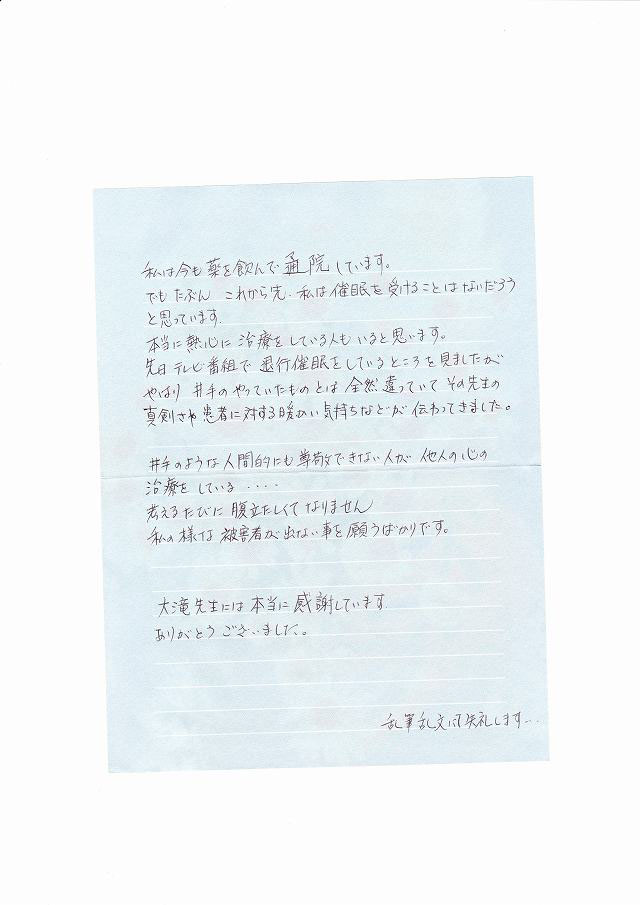 私は今も薬を飲んで通院しています。
でもたぶん これから先、私は催眠を受けることはないだろう
と思っています.
本当に熱心に治療をしている人もいると思います。
先日テレビ番組で退行催眠をしているところを見ましたが
やはり 井手のやっていたものとは全然違っていて その先生の
真剣さや患者に対する暖かい気持ちなどが伝わってきました。
井手のような人間的にも尊敬できない人が 他人の心の
治療をしている ‥‥
考えるたびに腹立たしくてなりません
私の様な被害者が出ない事を願うばかりです。
大滝先生には本当に感謝しています.
ありがとうございました。
乱筆乱文にて失礼します…